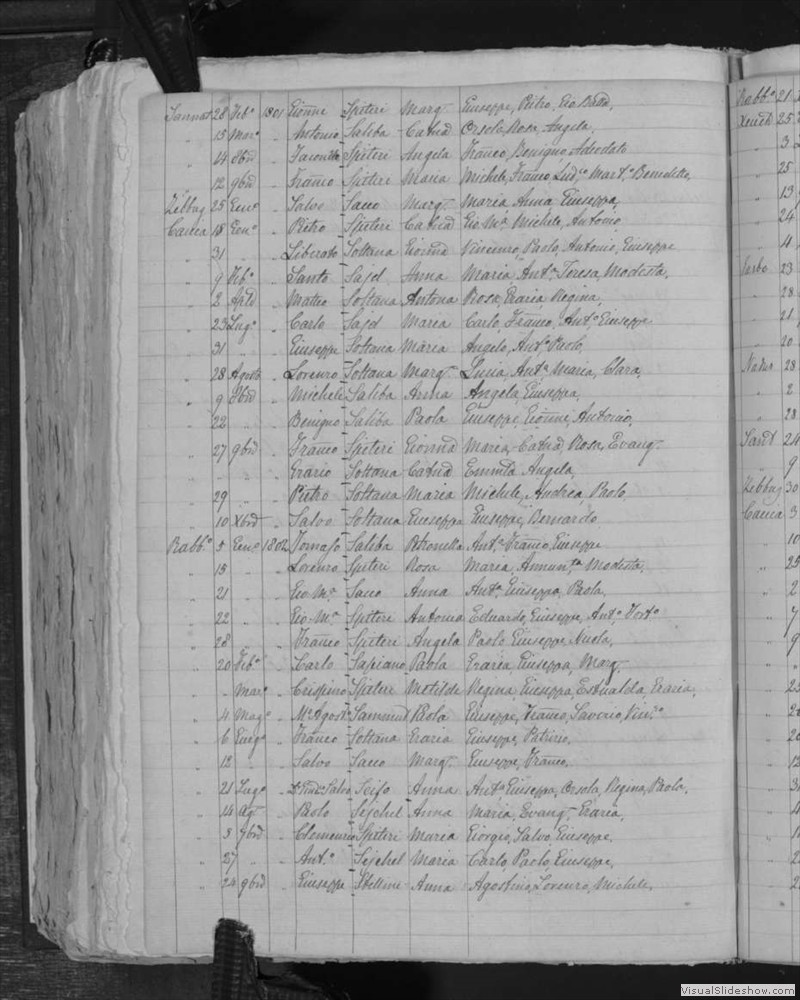 Sannat 28 Feb° 1801 Gionne Spiteri Marg- Giuseppe, Pietro, Gio Batta,
" 15 Mar° " Antonio Saliba Catnā Orsola, Rosa, Angela,
" 14 8brē " Spiteri Angela Franco, Benigno, Adeodato
" 12 9brē " Franco Spiteri Maria Michele, Franco, Lud,co Mart,o Benedetto,
Zebbug 25 Gen° " Salvo Sacco Marg- Maria Anna Giuseppa,
Caccia 18 Gen° " Pietro Spiteri Catnā Gio Ma Michele, Antonio,
" 31 " Liberato Soltana Gionnā Vincenzo, Paolo, Antonio, Giuseppe
" 9 Feb° " Santo Sajd Anna Maria Anta, Teresa, Modesta,
" 2 " Matteo Soltana Antona Rosa, Grazia Regina,
" 23 Lug° " Carlo Sajd Maria Carlo, Franco, Anto Giuseppe
" 31 " Giuseppe Soltana Maria Angelo, Anto, Paolo,
" 28 Agosto " Lorenzo Soltana Marg- Luisa, Anta Maria, Clara,
" 9 " Michele Saliba Anna Angela, Giuseppa,
" 22 " Benigno Saliba Paola Giuseppe, Gionne, Antonio,
" 27 9brē " Franco Spiteri Gionnā Maria, Catnā, Rosa, Evang-
" " " Grazio Soltana Catnā Angela,
" 29 " Pietro Soltana Maria Michele, Andrea, Paolo
" 10 Xbrē " Salvo Soltana Giuseppa Giuseppe, Bernardo
Rabb° 5 Gen° 1802 Tomaso Saliba Petronella Anto, Franco, Giuseppe
" 15 " Lorenzo Spiteri Rosa Maria, Annunta Modesta,
" 21 " Gio Ma Sacco Anna Anta, Giuseppa, Paola,
" 22 " Gio-Ma Spiteri Antonia Eduardo, Giuseppe, Anto, Forto
" 28 " Franco Spiteri Angela Paolo Giuseppe
" 20 Feb° " Carlo Sapiano Paola Grazia Giuseppa, Marg-
" " Mar° " Crispino Spiteri Metilde Regina, Giuseppa, Grazia,
" 4 Mag° " Ma Agost Sammut Paola Giuseppe, Franco, Saverio, Vin,zo
" 6 Giug° " Franco Soltana Grazia Giuseppe, Patrizio,
" 12 " Salvo Sacco Marg- Giuseppe, Franco,
" 21 Lug° " Salvo Anna Anta Giuseppa, Orsola, Regina, Paola,
" 14 Ag- " Paolo Sejchel Anna Maria, Evang-, Grazia,
" 3 " Clemenzio Spiteri Maria Giorgio, Salvo, Giuseppe,
" 27 " Anto Sejchel Maria Carlo, Paolo Giuseppe,
" 24 9brē " Giuseppe Stellini Anna Agostino, Lorenzo, Michele,
Rabb° 21
Xeuch 25
" 3
" 25
" 13
" 24
" 4
Gerbo 23
" 28
" 21
" 20
Nadur 28
" 2
" 28
Sant 24
" 9
Zebbug 30
Caccia 3
" 10
" 25
" 2
" 7
" 9
VisualSlideshow.com